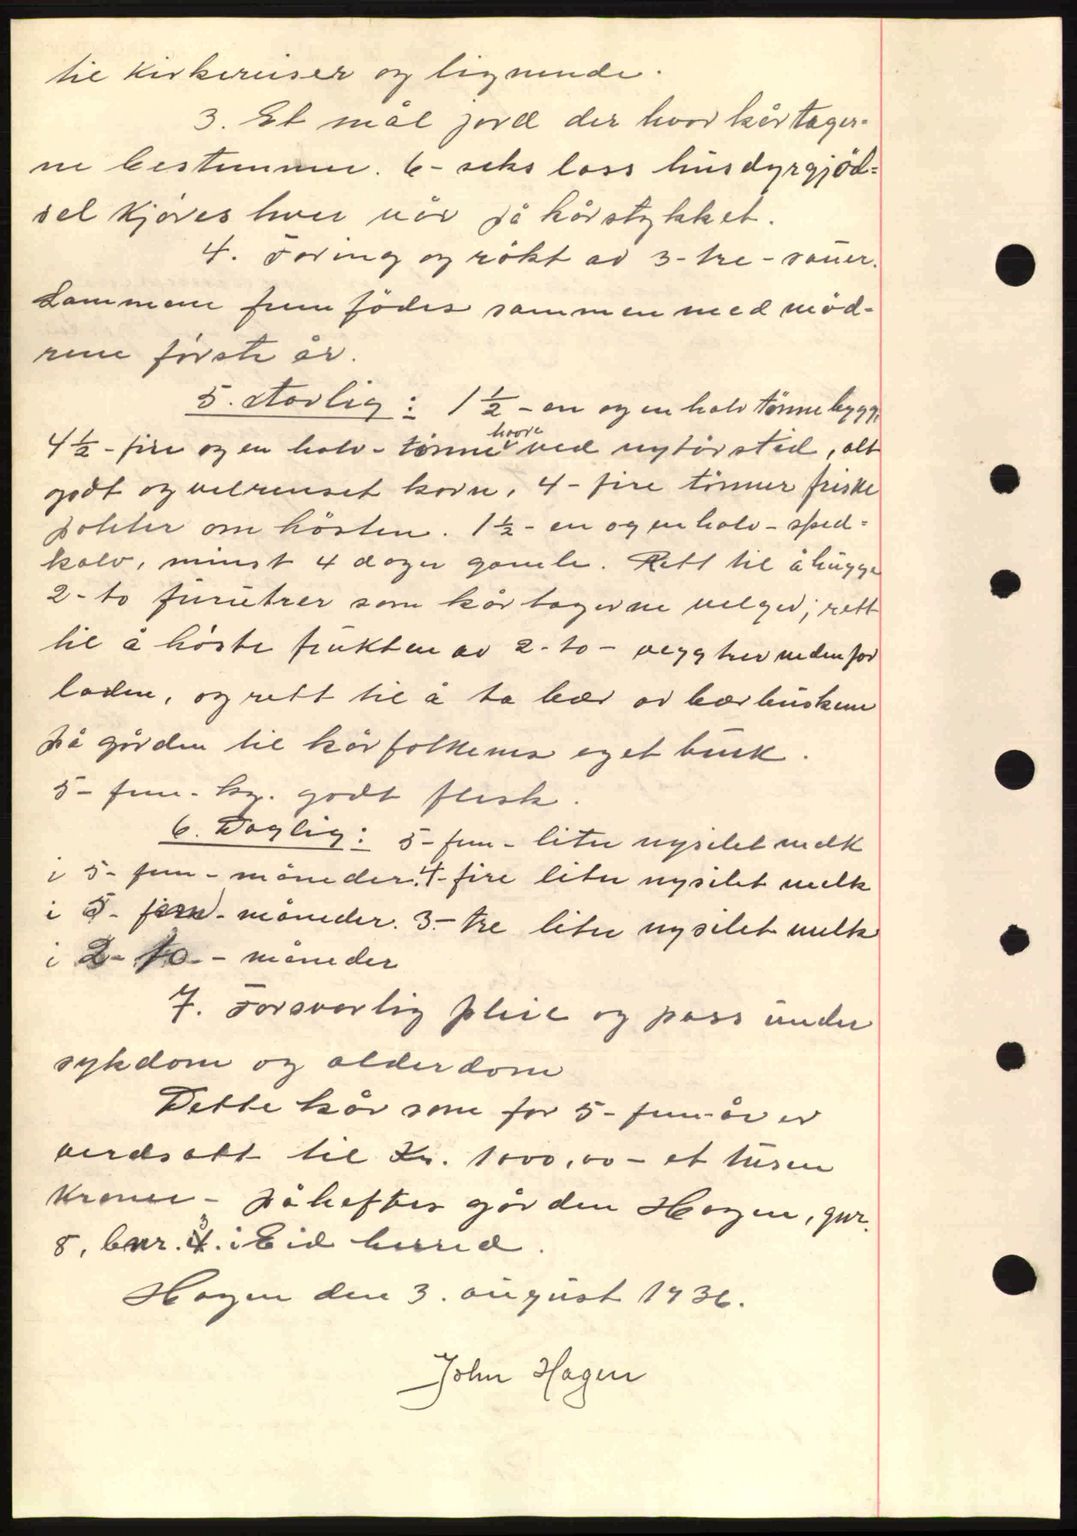 til kirkereiser og lignende.
3. Et mål jord der hvor kårtager-
ne bestemmer. 6 - seks lass husdyrgjöd-
sel kjöres hver vår på kårstykket.
4. Foring og rökt av 3 - tre - sauer.
Lammene fren födes sammen med möd-
rene förste år.
5. Aarlig: 1 1/2 - en og en halv tönne bygg,
4 1/2 - fire og en halv - tönne havre ved nyttårstid, alt
godt og velrenset korn, 4 - fire tönner friske
poteter om hösten. 1 1/2 - en og en halv - sped-
kalv, minst 4 dager gamle. Rett til å hugge
2 - to furutrer som kårtagerne velger; rett
til å höste frukten av 2 - to - veggtrer nedenfor
laden, og rett til å ta bær av bærbuskene
på gården til kårfolkenes eget bruk.
5 - fem - kg. godt flesk.
6. Daglig: 5 - fem - liter nysilet melk
i 5 - fem - måneder. 4 - fire liter nysilet melk
i 5 - fem - måneder. 3 - tre liter nysilet melk
i 2 - to - måneder
7. Forsvarlig pleie og pass under
sykdom og alderdom
Dette kår som for 5 - fem - år er
verdsatt til Kr. 1000,00 - et tusen
kroner - påheftes gården Hagen, gnr.
8, bnr. 3. i Eid herred.
Hagen den 3. august 1936.
John Hagen